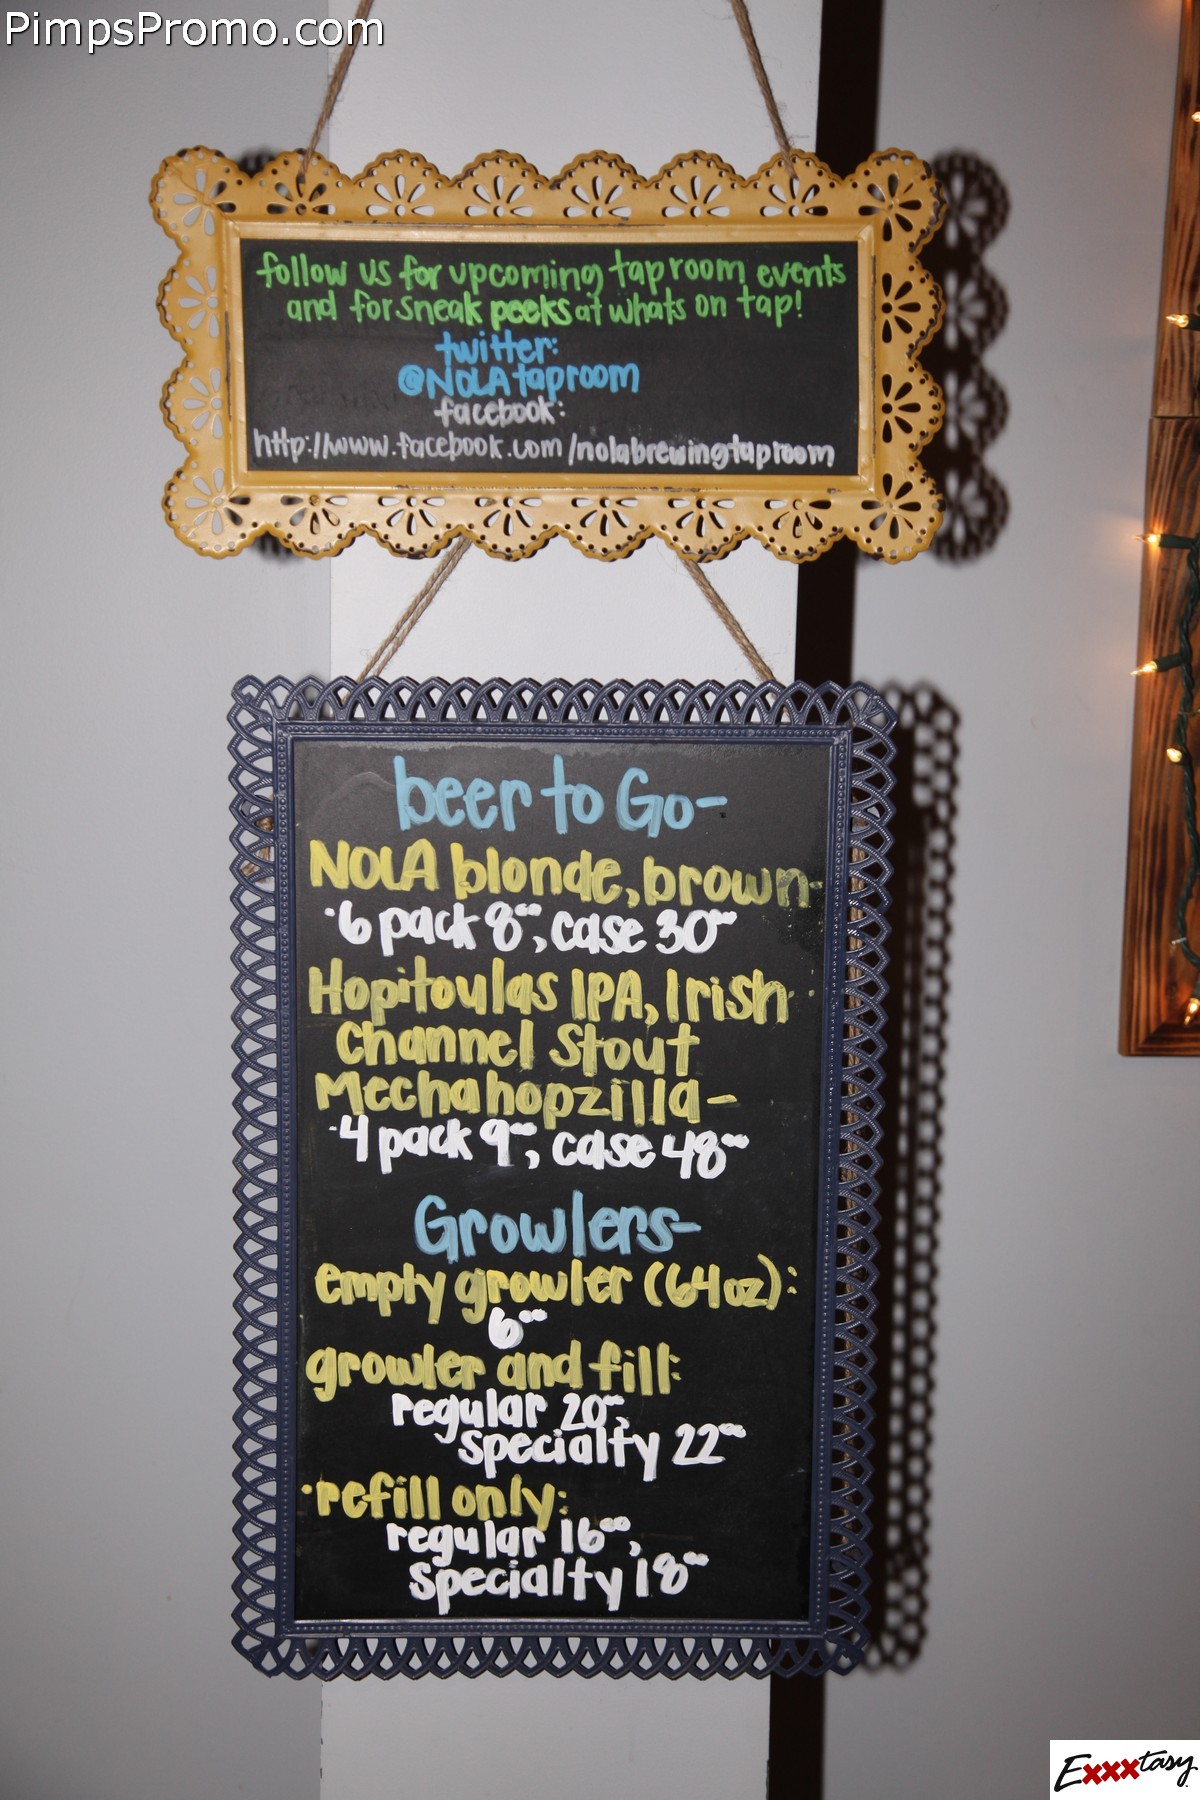 PimpsPromo.com
follow us for upcoming tap room events
and for sneak peeks at whats on tap!
twitter:
@NOLAtaproom
facebook:
http://www.facebook.com/nolabrewingtaproom
beer to Go-
NOLA blonde, brown-
·6 pack 8⁰⁰, case 30⁰⁰
Hopitoulas IPA, Irish
Channel Stout
Mechahopzilla-
·4 pack 9⁰⁰, case 48⁰⁰
Growlers-
empty growler (64oz):
6⁰⁰
growler and fill:
regular 20⁰⁰,
specialty 22⁰⁰
·refill only:
regular 16⁰⁰,
specialty 18⁰⁰
Exxxtasy